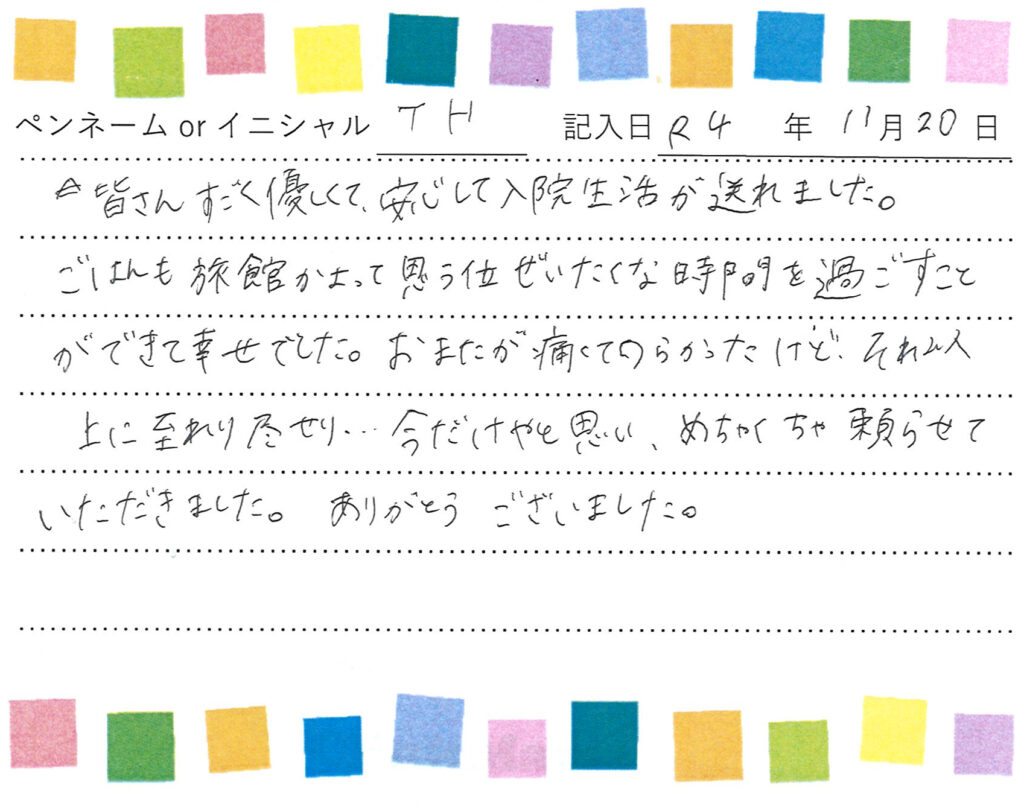 ペンネーム or イニシャル T H 記入日 R4 年 11月20日
皆さんすごく優しくて、安心して入院生活が送れました。
ごはんも旅館かよって思う位ぜいたくな時間を過ごすこと
ができて幸せでした。おまたが痛くてつらかったけど、それ以
上に至れり尽せり…今だけやと思い、めちゃくちゃ頼らせて
いただきました。ありがとうございました。